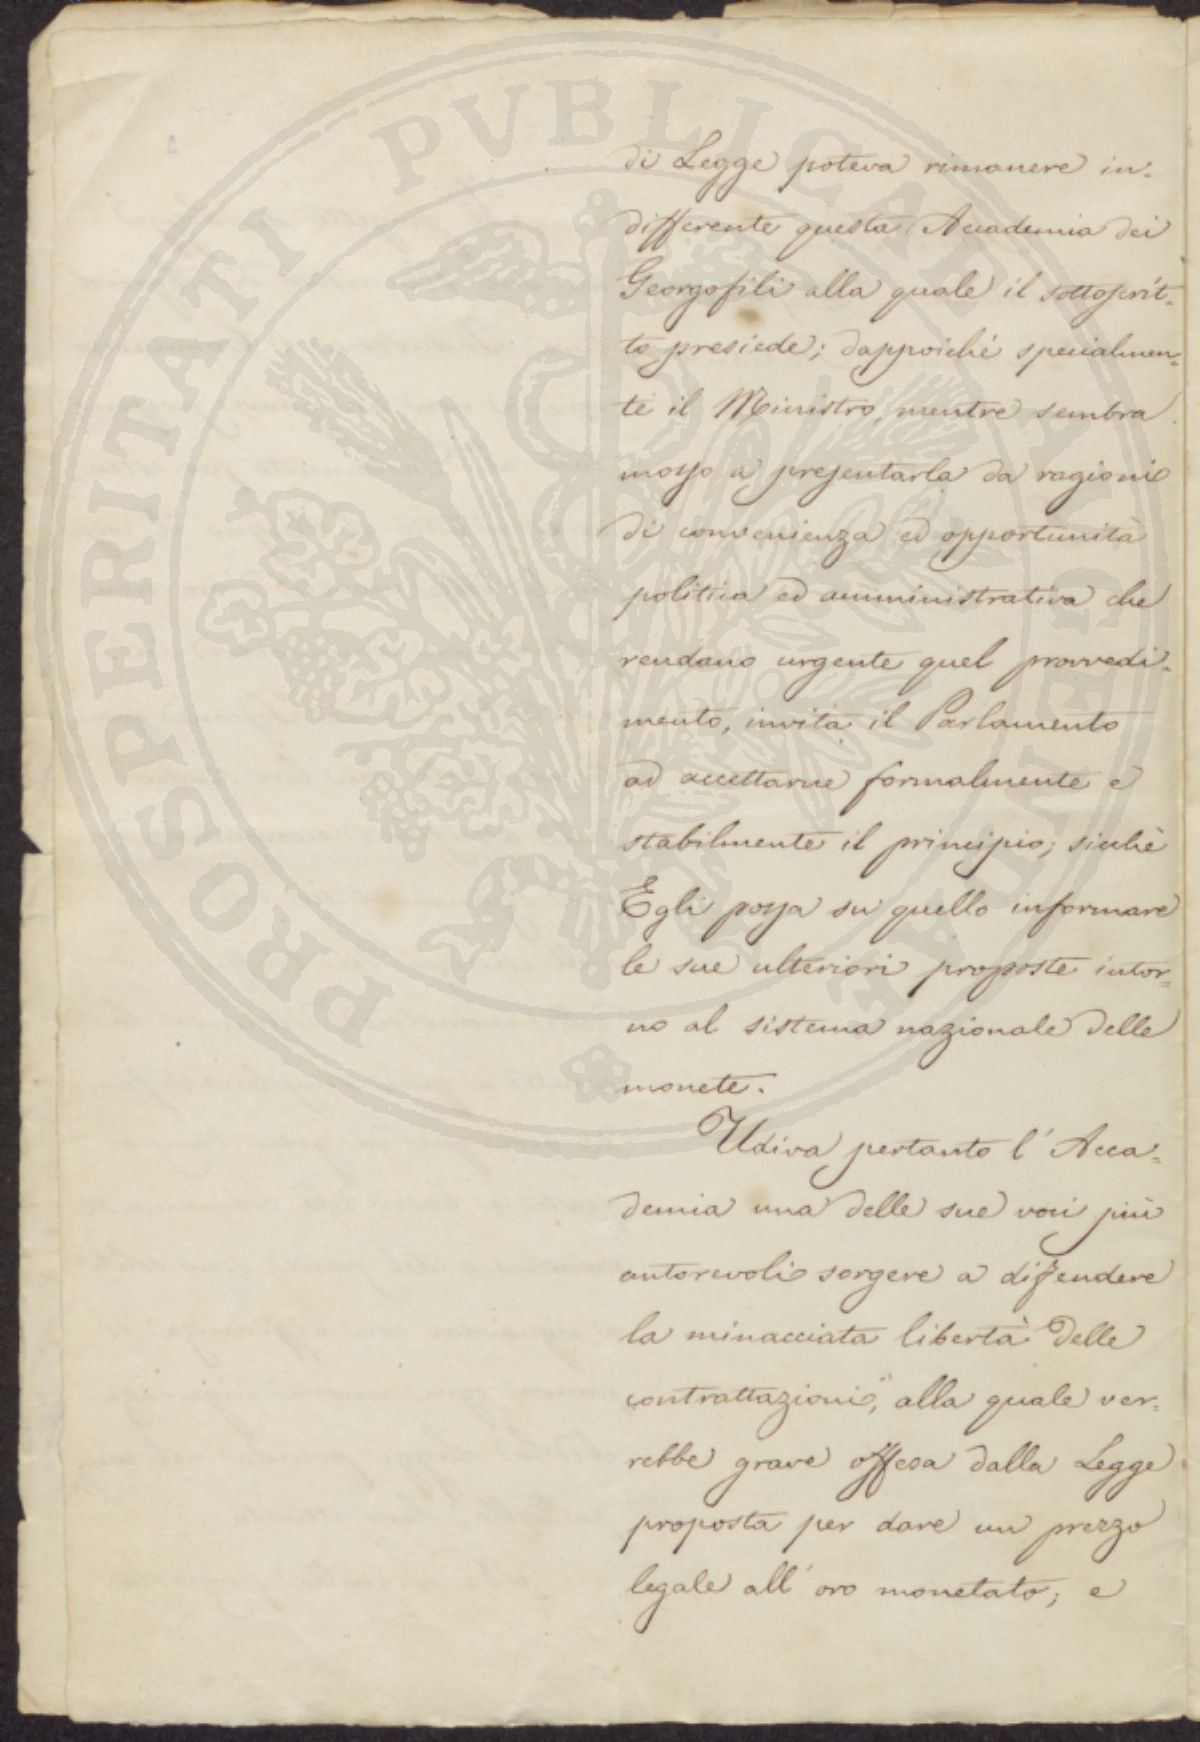 PROSPERITATI PVBLICAE AVGENDAE
di Legge poteva rimanere in-
differente questa Accademia dei
Georgofili alla quale il sottoscrit-
to presiede; dappoichè specialmen-
te il Ministro, mentre sembra
mosso a presentarla da ragioni
di convenienza ed opportunità
politica ed amministrativa che
rendano urgente quel provvedi-
mento, invita il Parlamento
ad accettarne formalmente e
stabilmente il principio; sicchè
Egli possa su quello informare
le sue ulteriori proposte intor-
no al sistema nazionale delle
monete.
Udiva pertanto l'Acca-
demia una delle sue voci più
autorevoli sorgere a difendere
la minacciata libertà delle
contrattazioni, alla quale ver-
rebbe grave offesa dalla Legge
proposta per dare un prezzo
legale all'oro monetato; e